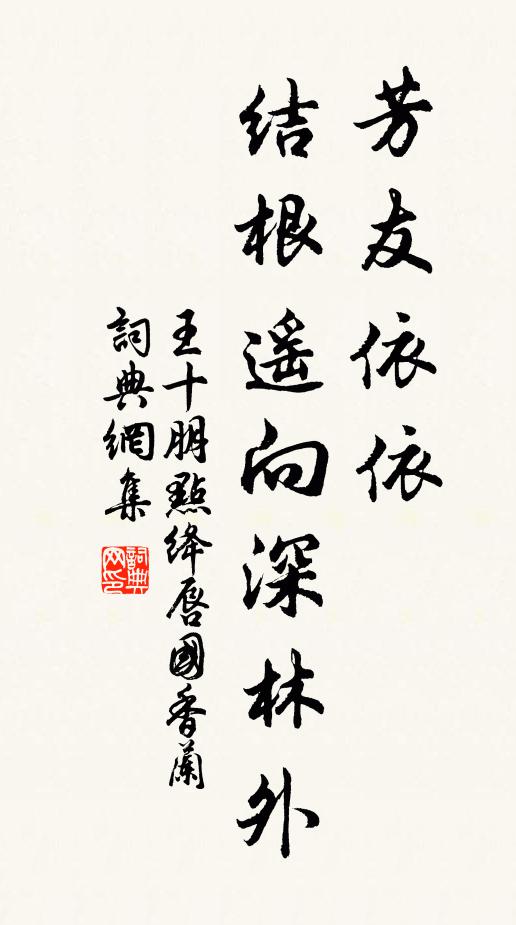 芳友依依
结根遥向深林外
王十朋點绛唇國香蘭
詞典網集
詞典网印